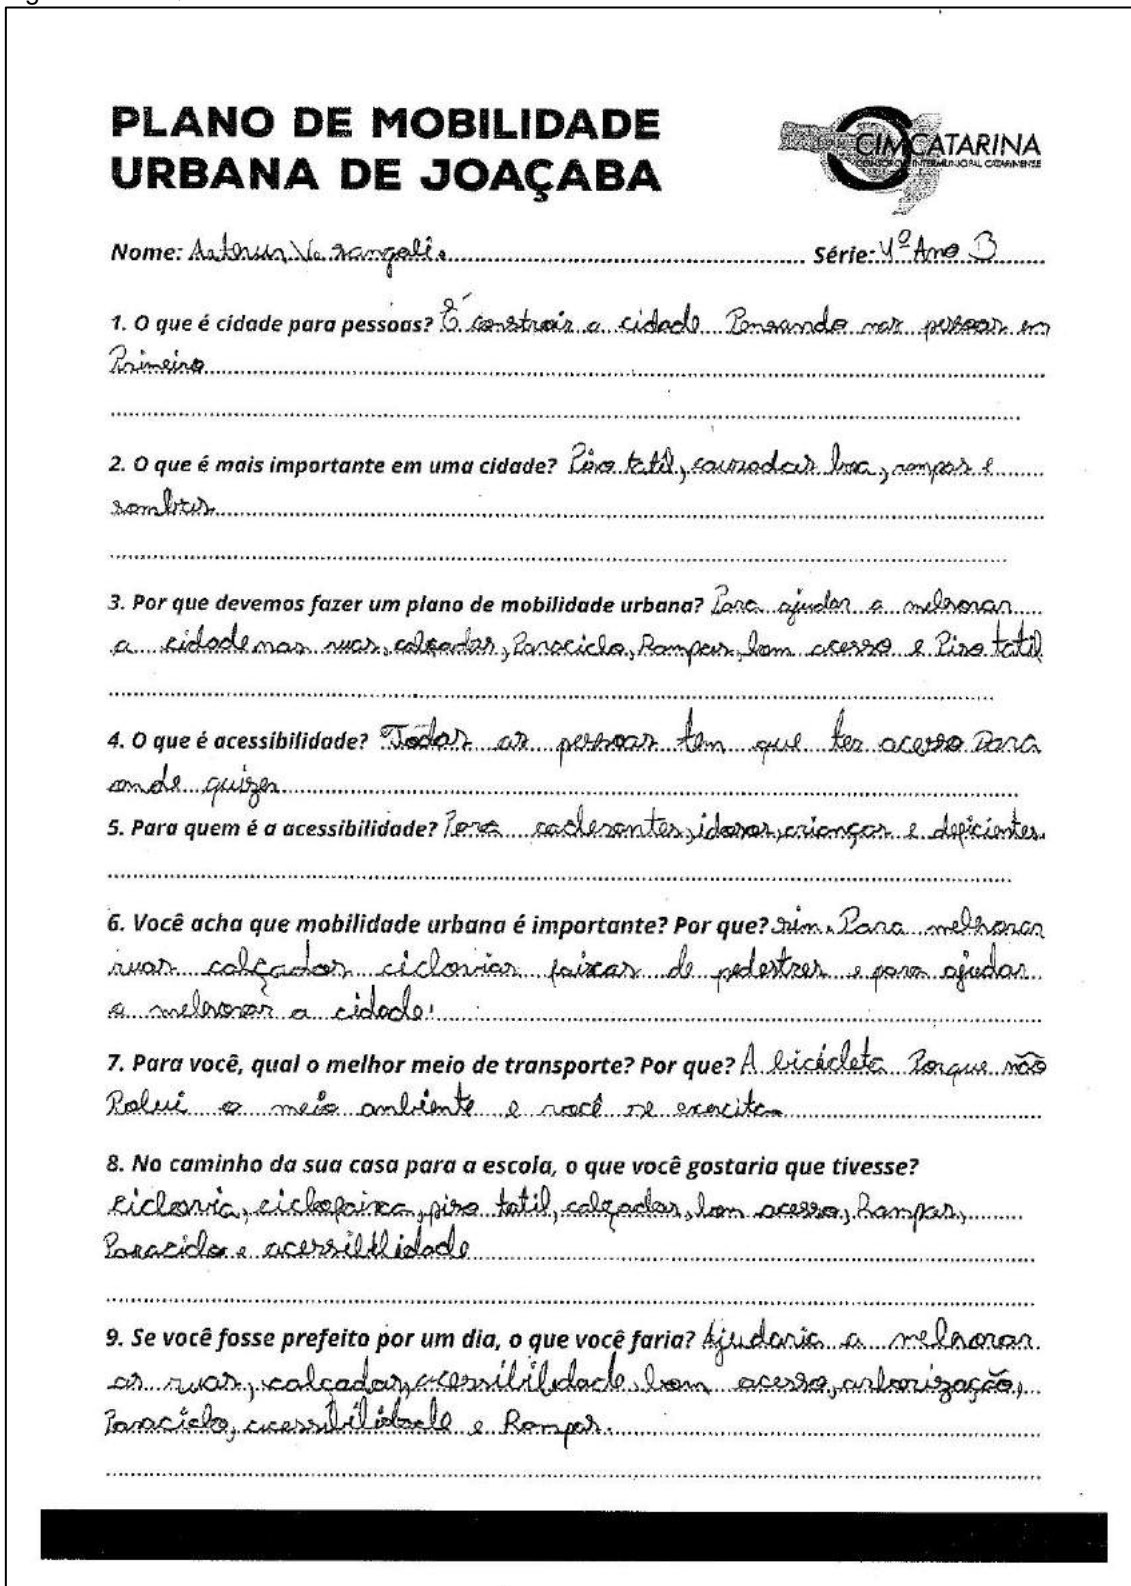 PLANO DE MOBILIDADE
URBANA DE JOAÇABA
CIMCATARINA
CONSÓRCIO INTERMUNICIPAL CATARINENSE
Nome: V. Série: 4º Ano B
1. O que é cidade para pessoas? É construir a cidade Pensando nas pessoas em
Primeiro
2. O que é mais importante em uma cidade? Piso tatil, boa, rampas e
3. Por que devemos fazer um plano de mobilidade urbana? Para ajudar a melhorar
a cidade nas ruas, calçadas, Paraciclo, Rampas, bom acesso e Piso tatil
4. O que é acessibilidade? Todas as pessoas tem que ter acesso Para
onde quizer
5. Para quem é a acessibilidade? Para caderantes, idosos, crianças e deficientes.
6. Você acha que mobilidade urbana é importante? Por que? sim. Para melhorar
ruas calçadas ciclovias faixas de pedestres e para ajudar
a melhorar a cidade.
7. Para você, qual o melhor meio de transporte? Por que? A bicicleta Porque não
Polui o meio ambiente e você se exercita
8. No caminho da sua casa para a escola, o que você gostaria que tivesse?
ciclovia, ciclofaixa, piso tatil, calçadas, bom acesso, Rampas,
Paraciclo e
9. Se você fosse prefeito por um dia, o que você faria? Ajudaria a melhorar
as ruas, calçadas, acessibilidade bom acesso, arborização,
Paraciclo, acessibilidade e Rampas.